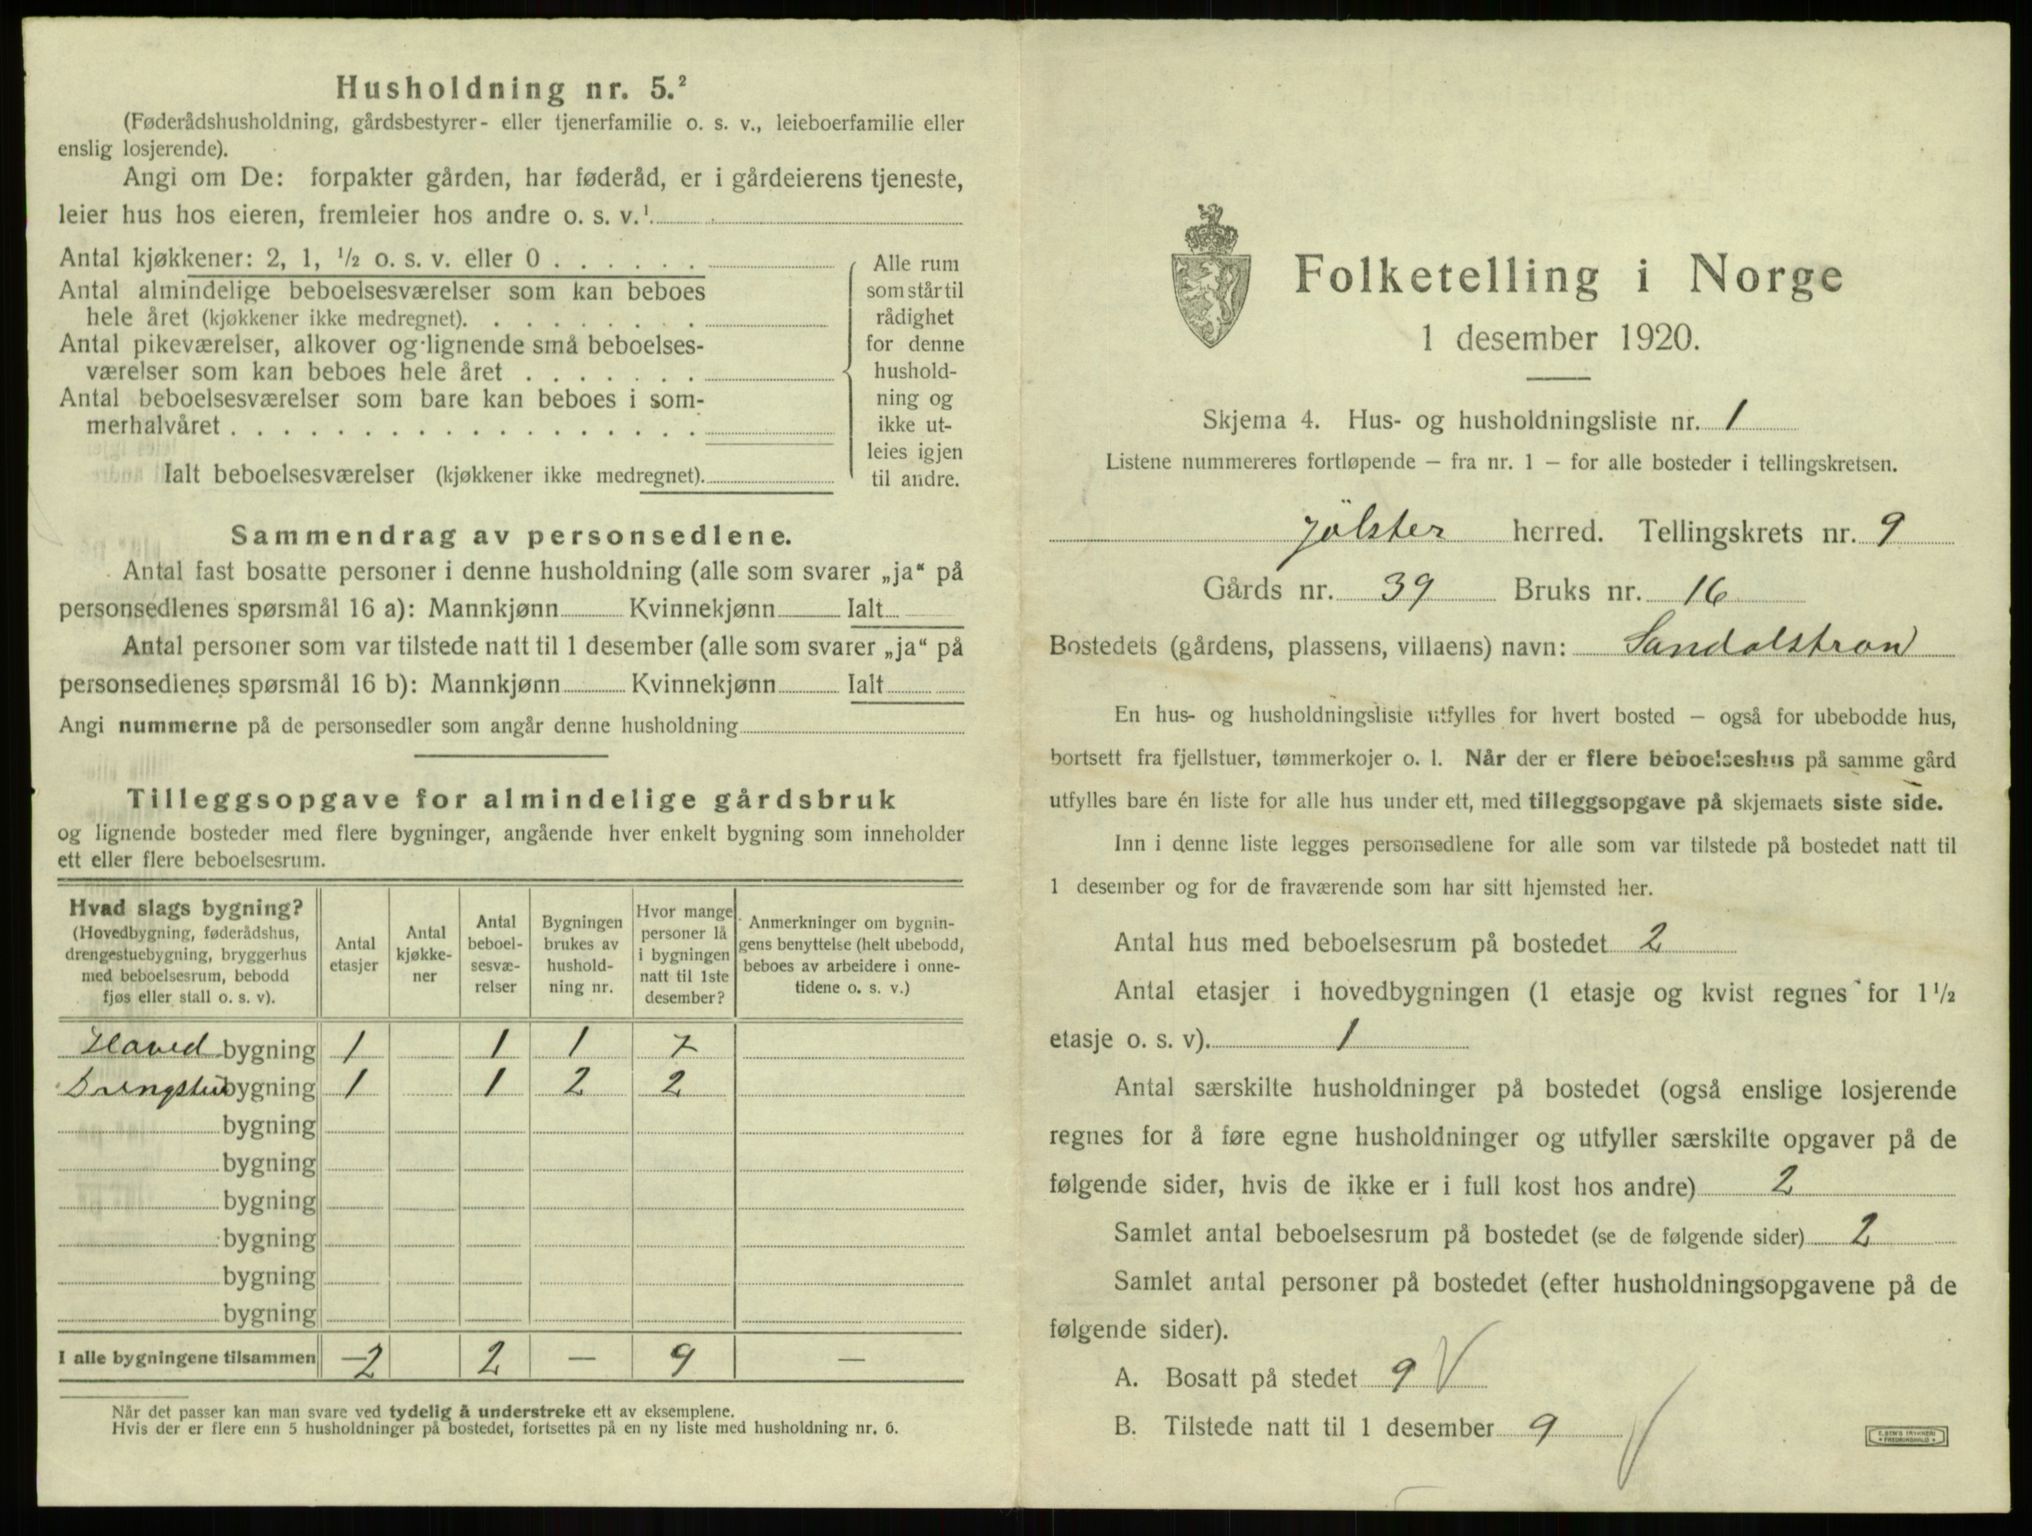 Husholdning nr. 5.²
(Føderådshusholdning, gårdsbestyrer- eller tjenerfamilie o. s. v., leieboerfamilie eller
enslig losjerende).
Angi om De: forpakter gården, har føderåd, er i gårdeierens tjeneste,
leier hus hos eieren, fremleier hos andre o. s. v.¹
Antal kjøkkener: 2, 1, ½ o. s. v. eller 0
Antal almindelige beboelsesværelser som kan beboes
hele året (kjøkkener ikke medregnet).
Antal pikeværelser, alkover og lignende små beboelses-
værelser som kan beboes hele året
Antal beboelsesværelser som bare kan beboes i som-
merhalvåret
Ialt beboelsesværelser (kjøkkener ikke medregnet).
Alle rum
som står til
rådighet
for denne
hushold-
ning og
ikke ut-
leies igjen
til andre.
Sammendrag av personsedlene.
Antal fast bosatte personer i denne husholdning (alle som svarer „ja“ på
personsedlenes spørsmål 16 a): Mannkjønn Kvinnekjønn Ialt
Antal personer som var tilstede natt til 1 desember (alle som svarer „ja“ på
personsedlenes spørsmål 16 b): Mannkjønn Kvinnekjønn Ialt
Angi nummerne på de personsedler som angår denne husholdning
Tilleggsopgave for almindelige gårdsbruk
og lignende bosteder med flere bygninger, angående hver enkelt bygning som inneholder
ett eller flere beboelsesrum.
Hvad slags bygning?
(Hovedbygning, føderådshus,
drengestuebygning, bryggerhus
med beboelsesrum, bebodd
fjøs eller stall o. s. v).
Antal
etasjer
Antal
kjøkke-
ner
Antal
beboel-
sesvæ-
relser
Bygningen
brukes av
hushold-
ning nr.
Hvor mange
personer lå
i bygningen
natt til 1ste
desember?
Anmerkninger om bygnin-
gens benyttelse (helt ubebodd,
beboes av arbeidere i onne-
tidene o. s. v.)
Hoved bygning 1 1 1 7
Drengstue bygning 1 1 2 2
bygning
bygning
bygning
bygning
bygning
bygning
I alle bygningene tilsammen 2 2 — 9 —
Når det passer kan man svare ved tydelig å understreke ett av eksemplene.
Hvis der er flere enn 5 husholdninger på bostedet, fortsettes på en ny liste med husholdning nr. 6.
Folketelling i Norge
1 desember 1920.
Skjema 4. Hus- og husholdningsliste nr. 1
Listene nummereres fortløpende — fra nr. 1 — for alle bosteder i tellingskretsen.
Jölster herred. Tellingskrets nr. 9
Gårds nr. 39 Bruks nr. 16
Bostedets (gårdens, plassens, villaens) navn: Sandalstran
En hus- og husholdningsliste utfylles for hvert bosted — også for ubebodde hus,
bortsett fra fjellstuer, tømmerkojer o. l. Når der er flere beboelseshus på samme gård
utfylles bare én liste for alle hus under ett, med tilleggsopgave på skjemaets siste side.
Inn i denne liste legges personsedlene for alle som var tilstede på bostedet natt til
1 desember og for de fraværende som har sitt hjemsted her.
Antal hus med beboelsesrum på bostedet 2
Antal etasjer i hovedbygningen (1 etasje og kvist regnes for 1½
etasje o. s. v). 1
Antal særskilte husholdninger på bostedet (også enslige losjerende
regnes for å føre egne husholdninger og utfyller særskilte opgaver på de
følgende sider, hvis de ikke er i full kost hos andre) 2
Samlet antal beboelsesrum på bostedet (se de følgende sider) 2
Samlet antal personer på bostedet (efter husholdningsopgavene på de
følgende sider).
A. Bosatt på stedet 9 V
B. Tilstede natt til 1 desember 9 V